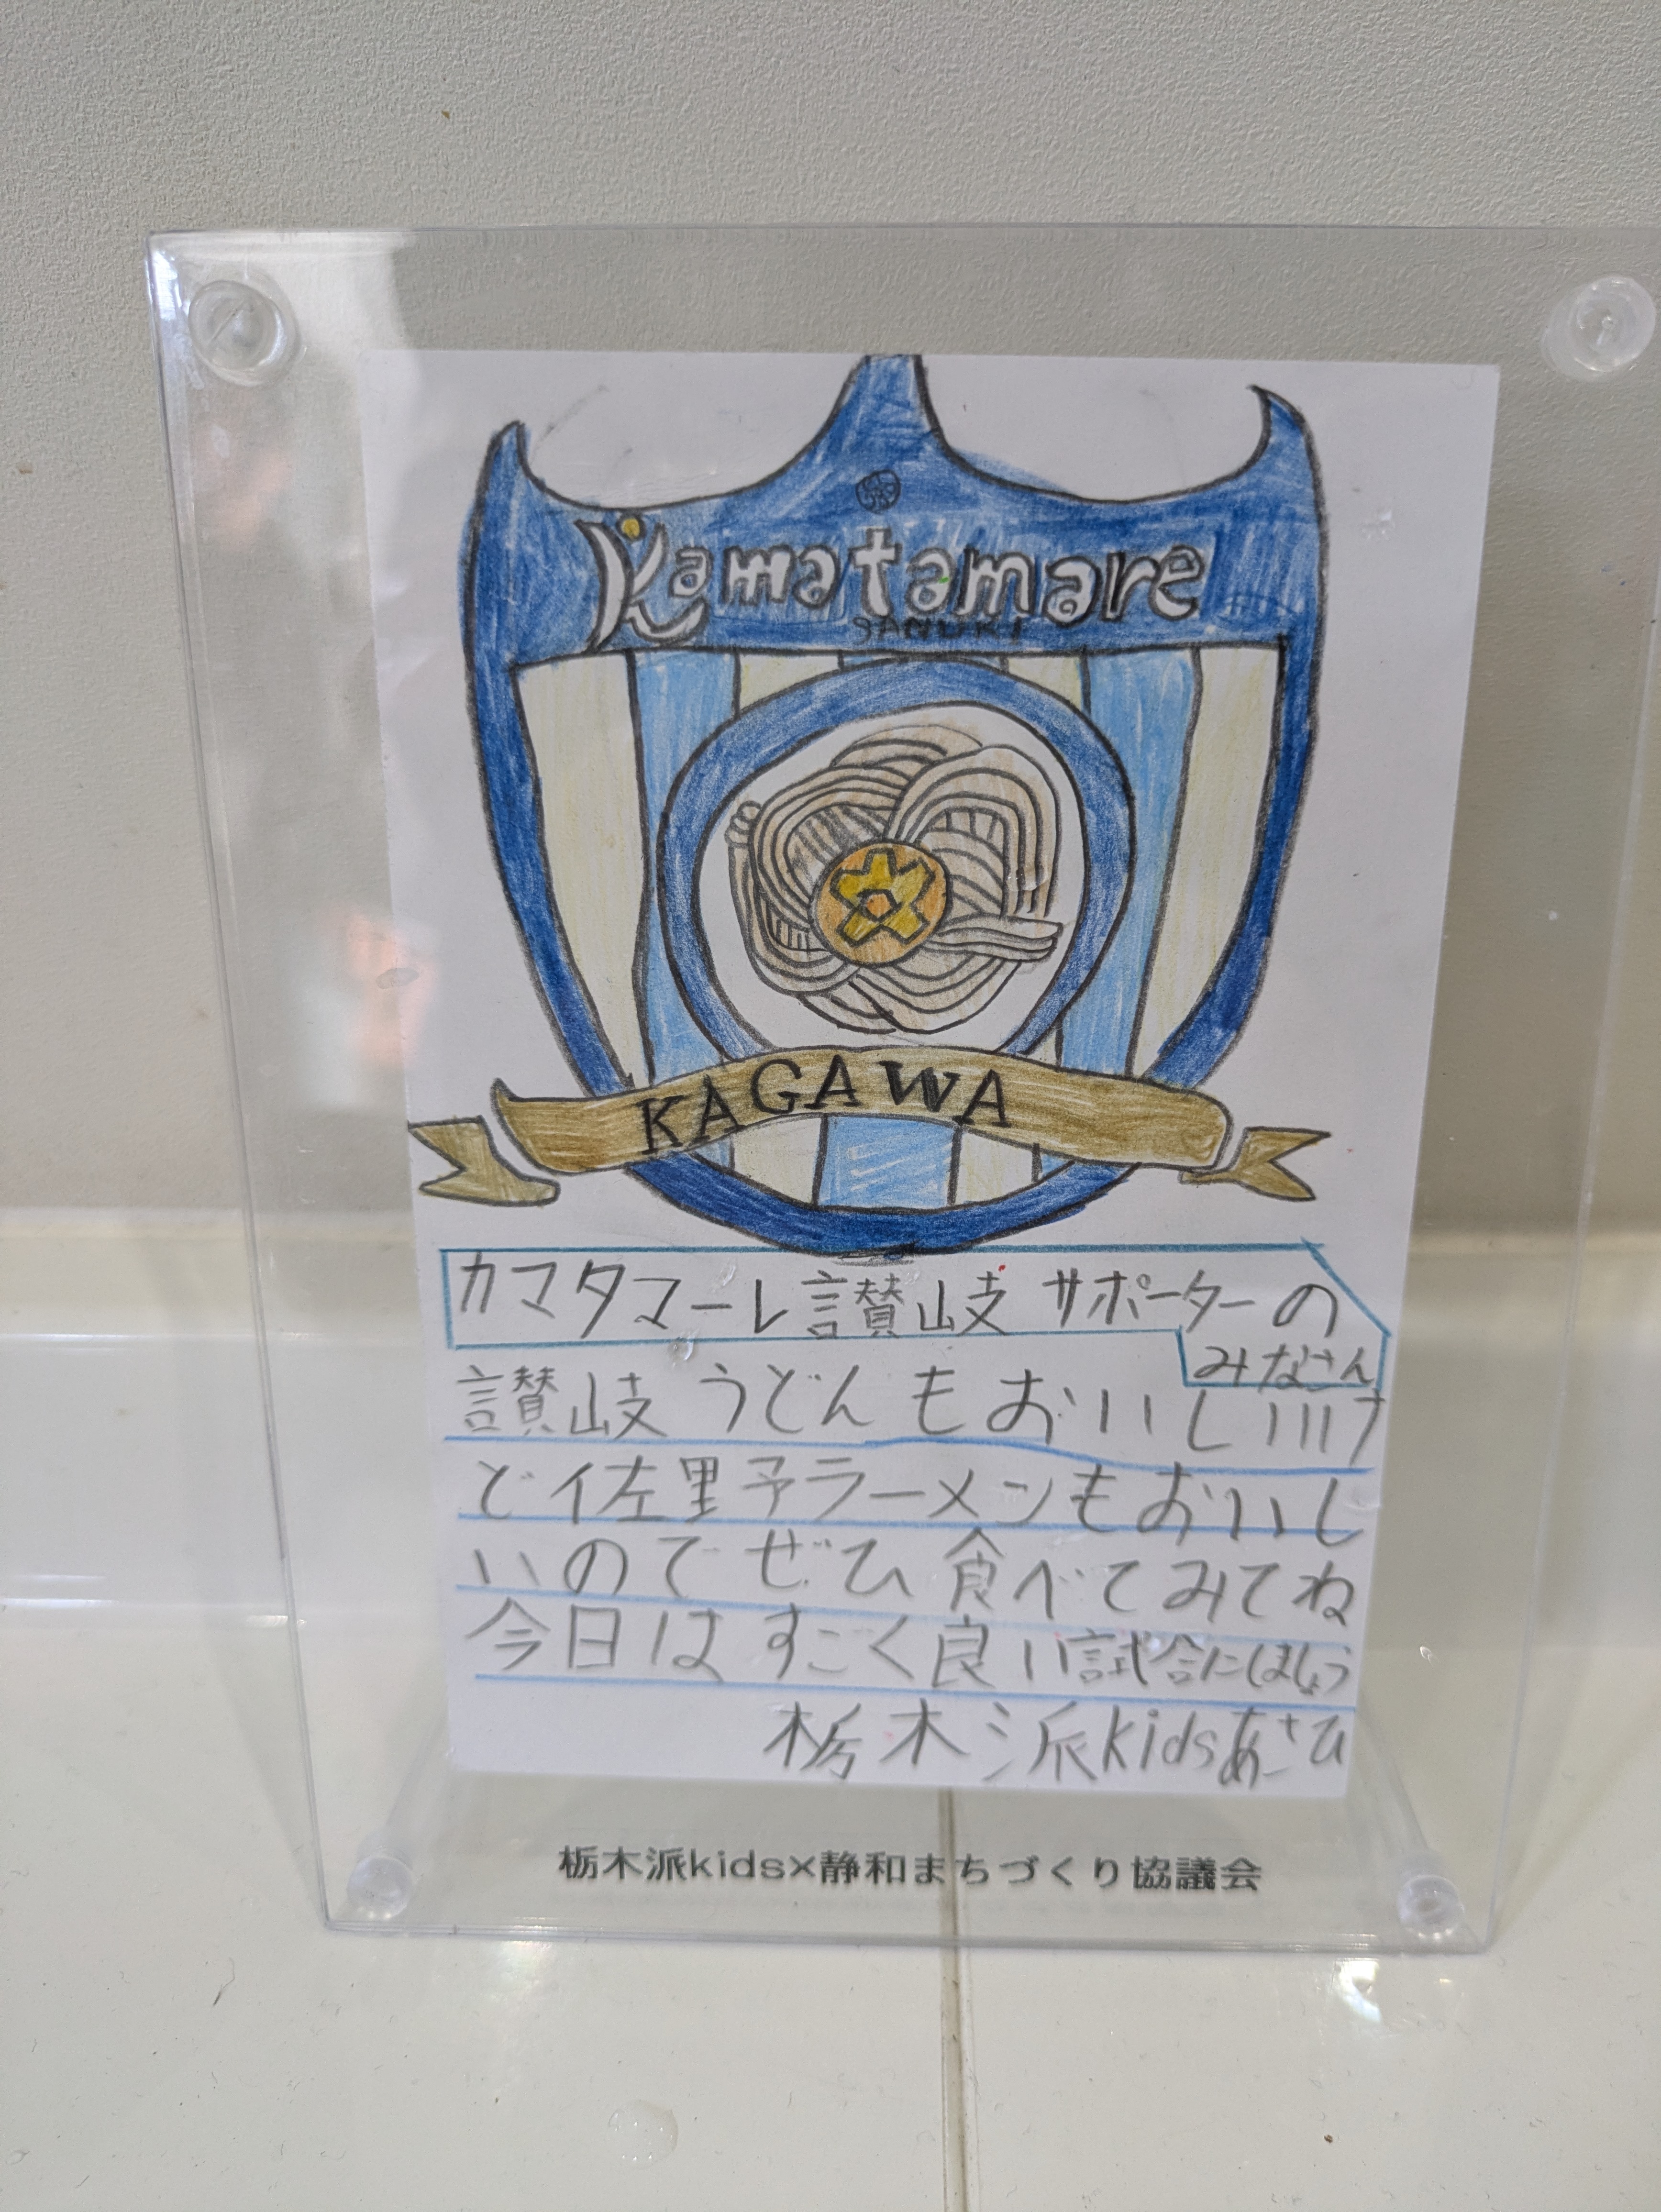 Kamatamare
SANUKI
KAGAWA
カマタマーレ讃岐サポーターの
みなさん
讃岐うどんもおいしいけ
ど佐野ラーメンもおいし
いのでぜひ食べてみてね
今日はすごく良い試合にしましょう
栃木派kidsあさひ
栃木派kids×静和まちづくり協議会